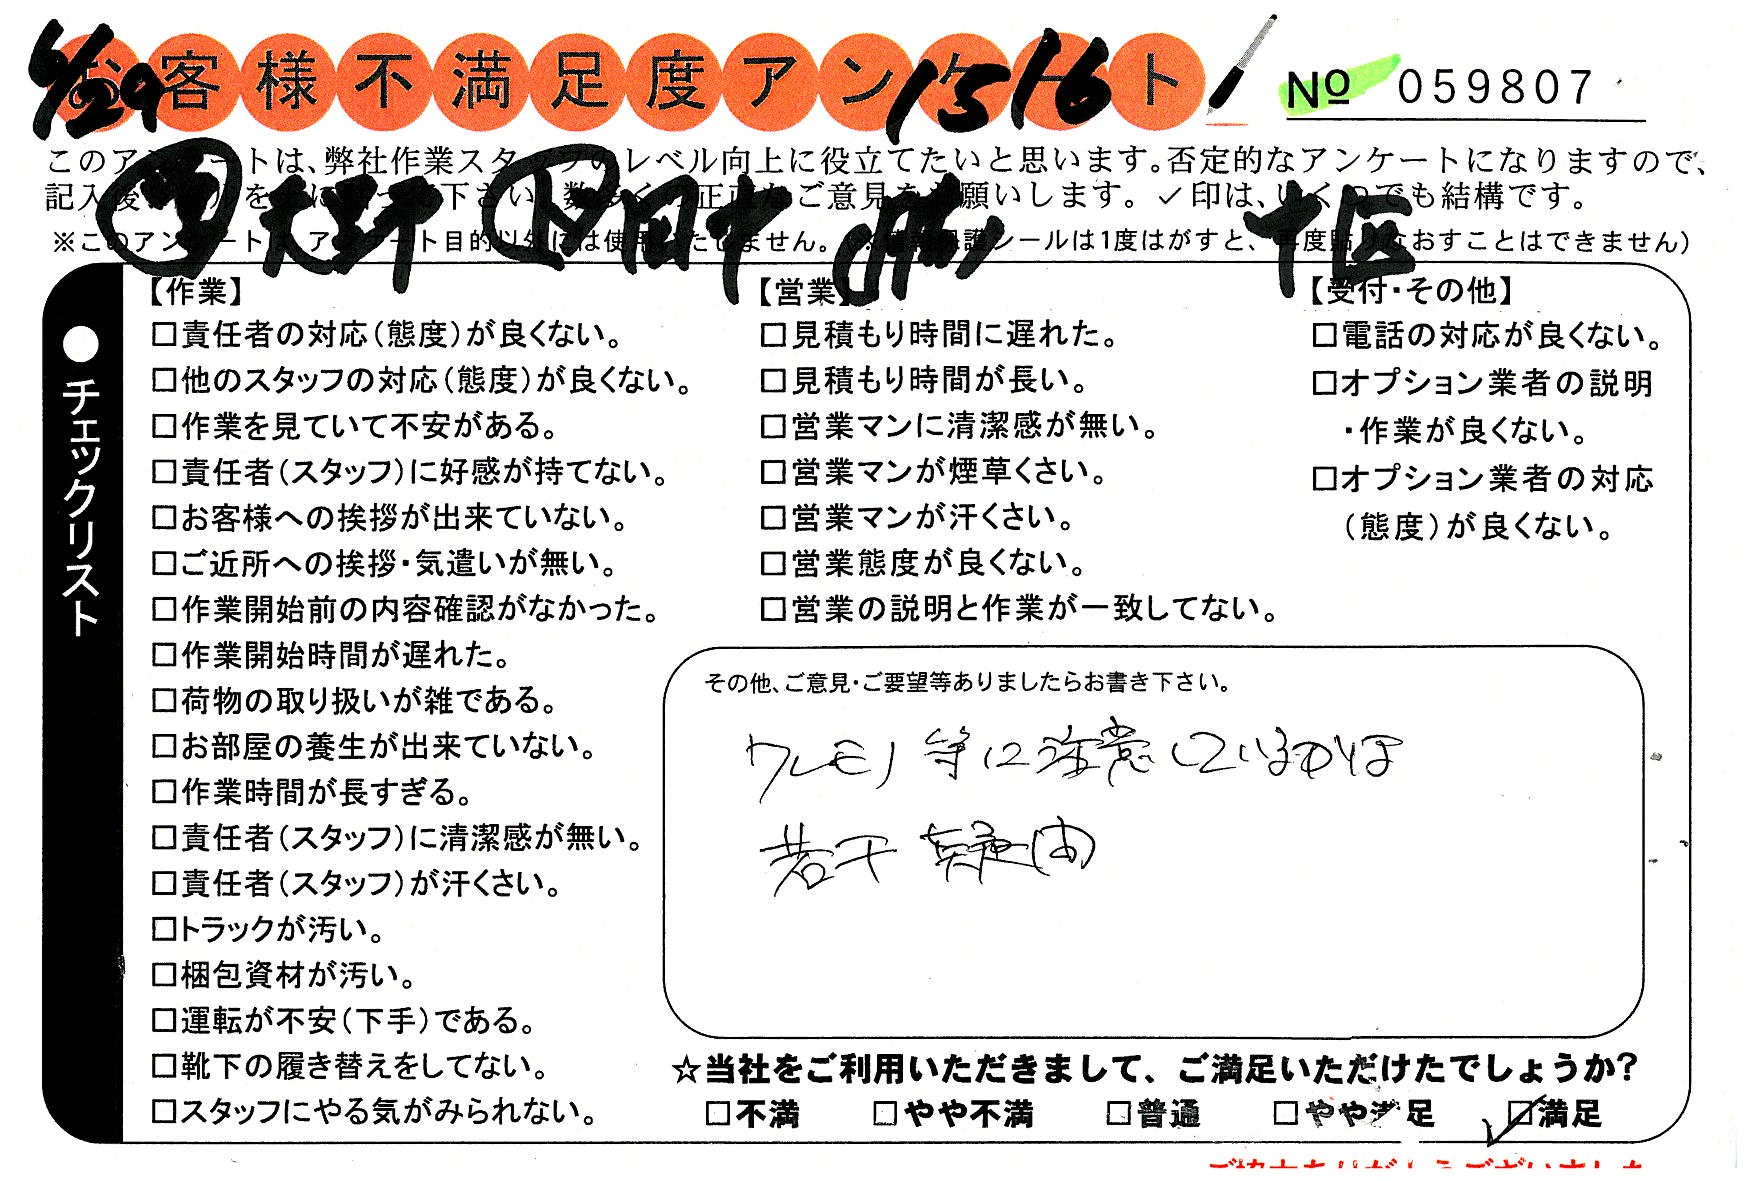 お客様不満足度アンケート
6/29
1516
No 059807
このアンケートは、弊社作業スタッフのレベル向上に役立てたいと思います。否定的なアンケートになりますので、
記入後シールを上に貼って下さい。数多くの正直なご意見をお願いします。✓印は、いくつでも結構です。
大野 田中
※このアンケートは、アンケート目的以外には使用いたしません。(※ 保護シールは1度はがすと、再度貼りなおすことはできません)
●チェックリスト
【作業】
□責任者の対応(態度)が良くない。
□他のスタッフの対応(態度)が良くない。
□作業を見ていて不安がある。
□責任者(スタッフ)に好感が持てない。
□お客様への挨拶が出来ていない。
□ご近所への挨拶・気遣いが無い。
□作業開始前の内容確認がなかった。
□作業開始時間が遅れた。
□荷物の取り扱いが雑である。
□お部屋の養生が出来ていない。
□作業時間が長すぎる。
□責任者(スタッフ)に清潔感が無い。
□責任者(スタッフ)が汗くさい。
□トラックが汚い。
□梱包資材が汚い。
□運転が不安(下手)である。
□靴下の履き替えをしてない。
□スタッフにやる気がみられない。
【営業】
□見積もり時間に遅れた。
□見積もり時間が長い。
□営業マンに清潔感が無い。
□営業マンが煙草くさい。
□営業マンが汗くさい。
□営業態度が良くない。
□営業の説明と作業が一致してない。
【受付・その他】
□電話の対応が良くない。
□オプション業者の説明
・作業が良くない。
□オプション業者の対応
(態度)が良くない。
その他、ご意見・ご要望等ありましたらお書き下さい。
ワレモノ等に注意しているかは
若干疑問
☆当社をご利用いただきまして、ご満足いただけたでしょうか?
□不満 □やや不満 □普通 □やや満足 ☑満足
ご協力ありがとうございました